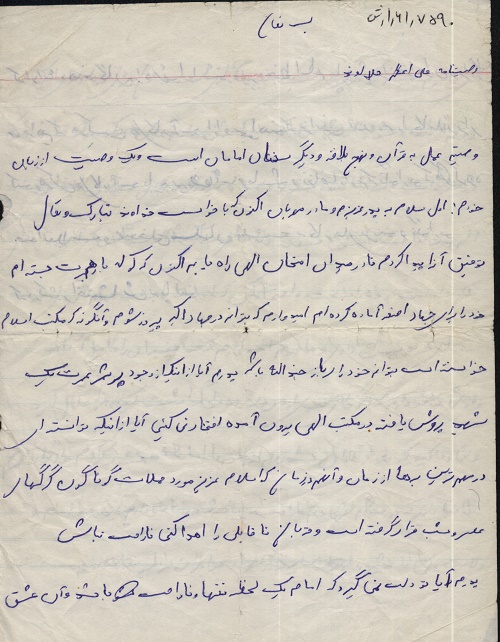 بسمه تعالی
وصیتنامه علی اصغر
وصیتم عمل به قرآن و نهج البلاغه و دیگر سخنان امامان است و یک وصیت ارزیابی
خودم: اول سلام به پدر عزیزم و مادر مهربان اکنون که با خواست خداوند تبارک و تعال
توفیق آنرا پیدا کردم تا در میدان امتحان الهی راه یابم اکنون که کوله بار هجرت بسته ام
خود را برای جهاد اصغر آماده کرده ام امیدوارم که بتوانم در جهاد اکبر پیروز شوم و آنگونه که مکتب اسلام
خواسته است بتوانم خود را سرباز حزب الله باشم پدرم آیا از اینکه از وجود پر ثمرت یک
شهید پرورش یافته در مکتب الهی بیرون آمده افتخار نمی کنی آیا از اینکه توانسته ای
در مهم ترین زمان و آنهم در زمانی که اسلام عزیز مورد حملات گوناگون گرگهای
قرار گرفته است و قربانی نا قابلی را اهدا کنی ناراحت نباش
پدرم آیا تو دلت نمی گیرد که امام یک لحظه تنها و ناراحت باشد و آن عشق